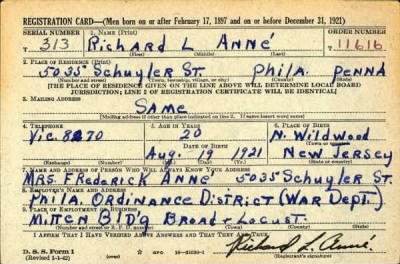 REGISTRATION CARD—(Men born on or after February 17, 1897 and on or before December 31, 1921)
SERIAL NUMBER 1. NAME (Print) ORDER NUMBER
T 313 Richard L Anné 11616
(First) (Middle) (Last)
2. PLACE OF RESIDENCE (Print)
5035 Schuyler St. Phila. Penna
(Number and street) (Town, township, village, or city) (County) (State)
[THE PLACE OF RESIDENCE GIVEN ON THE LINE ABOVE WILL DETERMINE LOCAL BOARD
JURISDICTION; LINE 2 OF REGISTRATION CERTIFICATE WILL BE IDENTICAL]
3. MAILING ADDRESS
Same
[Mailing address if other than place indicated on line 2. If same insert word same]
4. TELEPHONE 5. AGE IN YEARS 6. PLACE OF BIRTH
Vic. 8270 20 N. Wildwood
DATE OF BIRTH (Town or county)
Aug. 19 1921 New Jersey
(Exchange) (Number) (Mo.) (Day) (Yr.) (State or country)
7. NAME AND ADDRESS OF PERSON WHO WILL ALWAYS KNOW YOUR ADDRESS
Mrs. Frederick Anné 5035 Schuyler St.
8. EMPLOYER'S NAME AND ADDRESS
Phila. Ordinance District (War Dept.)
9. PLACE OF EMPLOYMENT OR BUSINESS
Mitten Bld'g Broad + Locust.
(Number and street or R. F. D. number) (Town) (County) (State)
I AFFIRM THAT I HAVE VERIFIED ABOVE ANSWERS AND THAT THEY ARE TRUE.
D. S. S. Form 1
(Revised 1-1-42) (over) GPO 16—21630-1
Richard L. Anné.
(Registrant's signature)